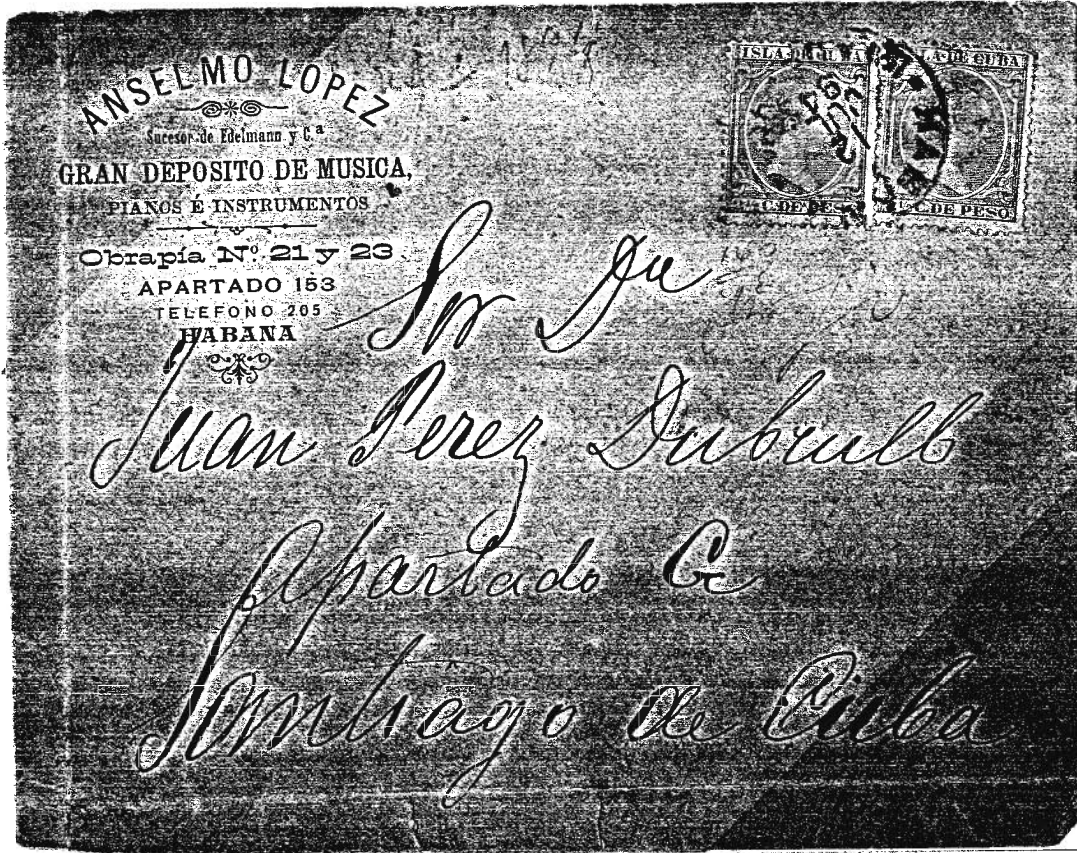 ANSELMO LOPEZ
Sucesor de Edelmann y C.ª
GRAN DEPOSITO DE MUSICA,
PIANOS É INSTRUMENTOS
Obrapía Nº. 21 y 23
APARTADO 153
TELEFONO 205
HABANA
ISLA DE CUBA
LA DE CUBA
C. DE PESO
C. DE PESO
HAB
Sor Dn
Juan Perez Dubrull
Apartado
Santiago de Cuba